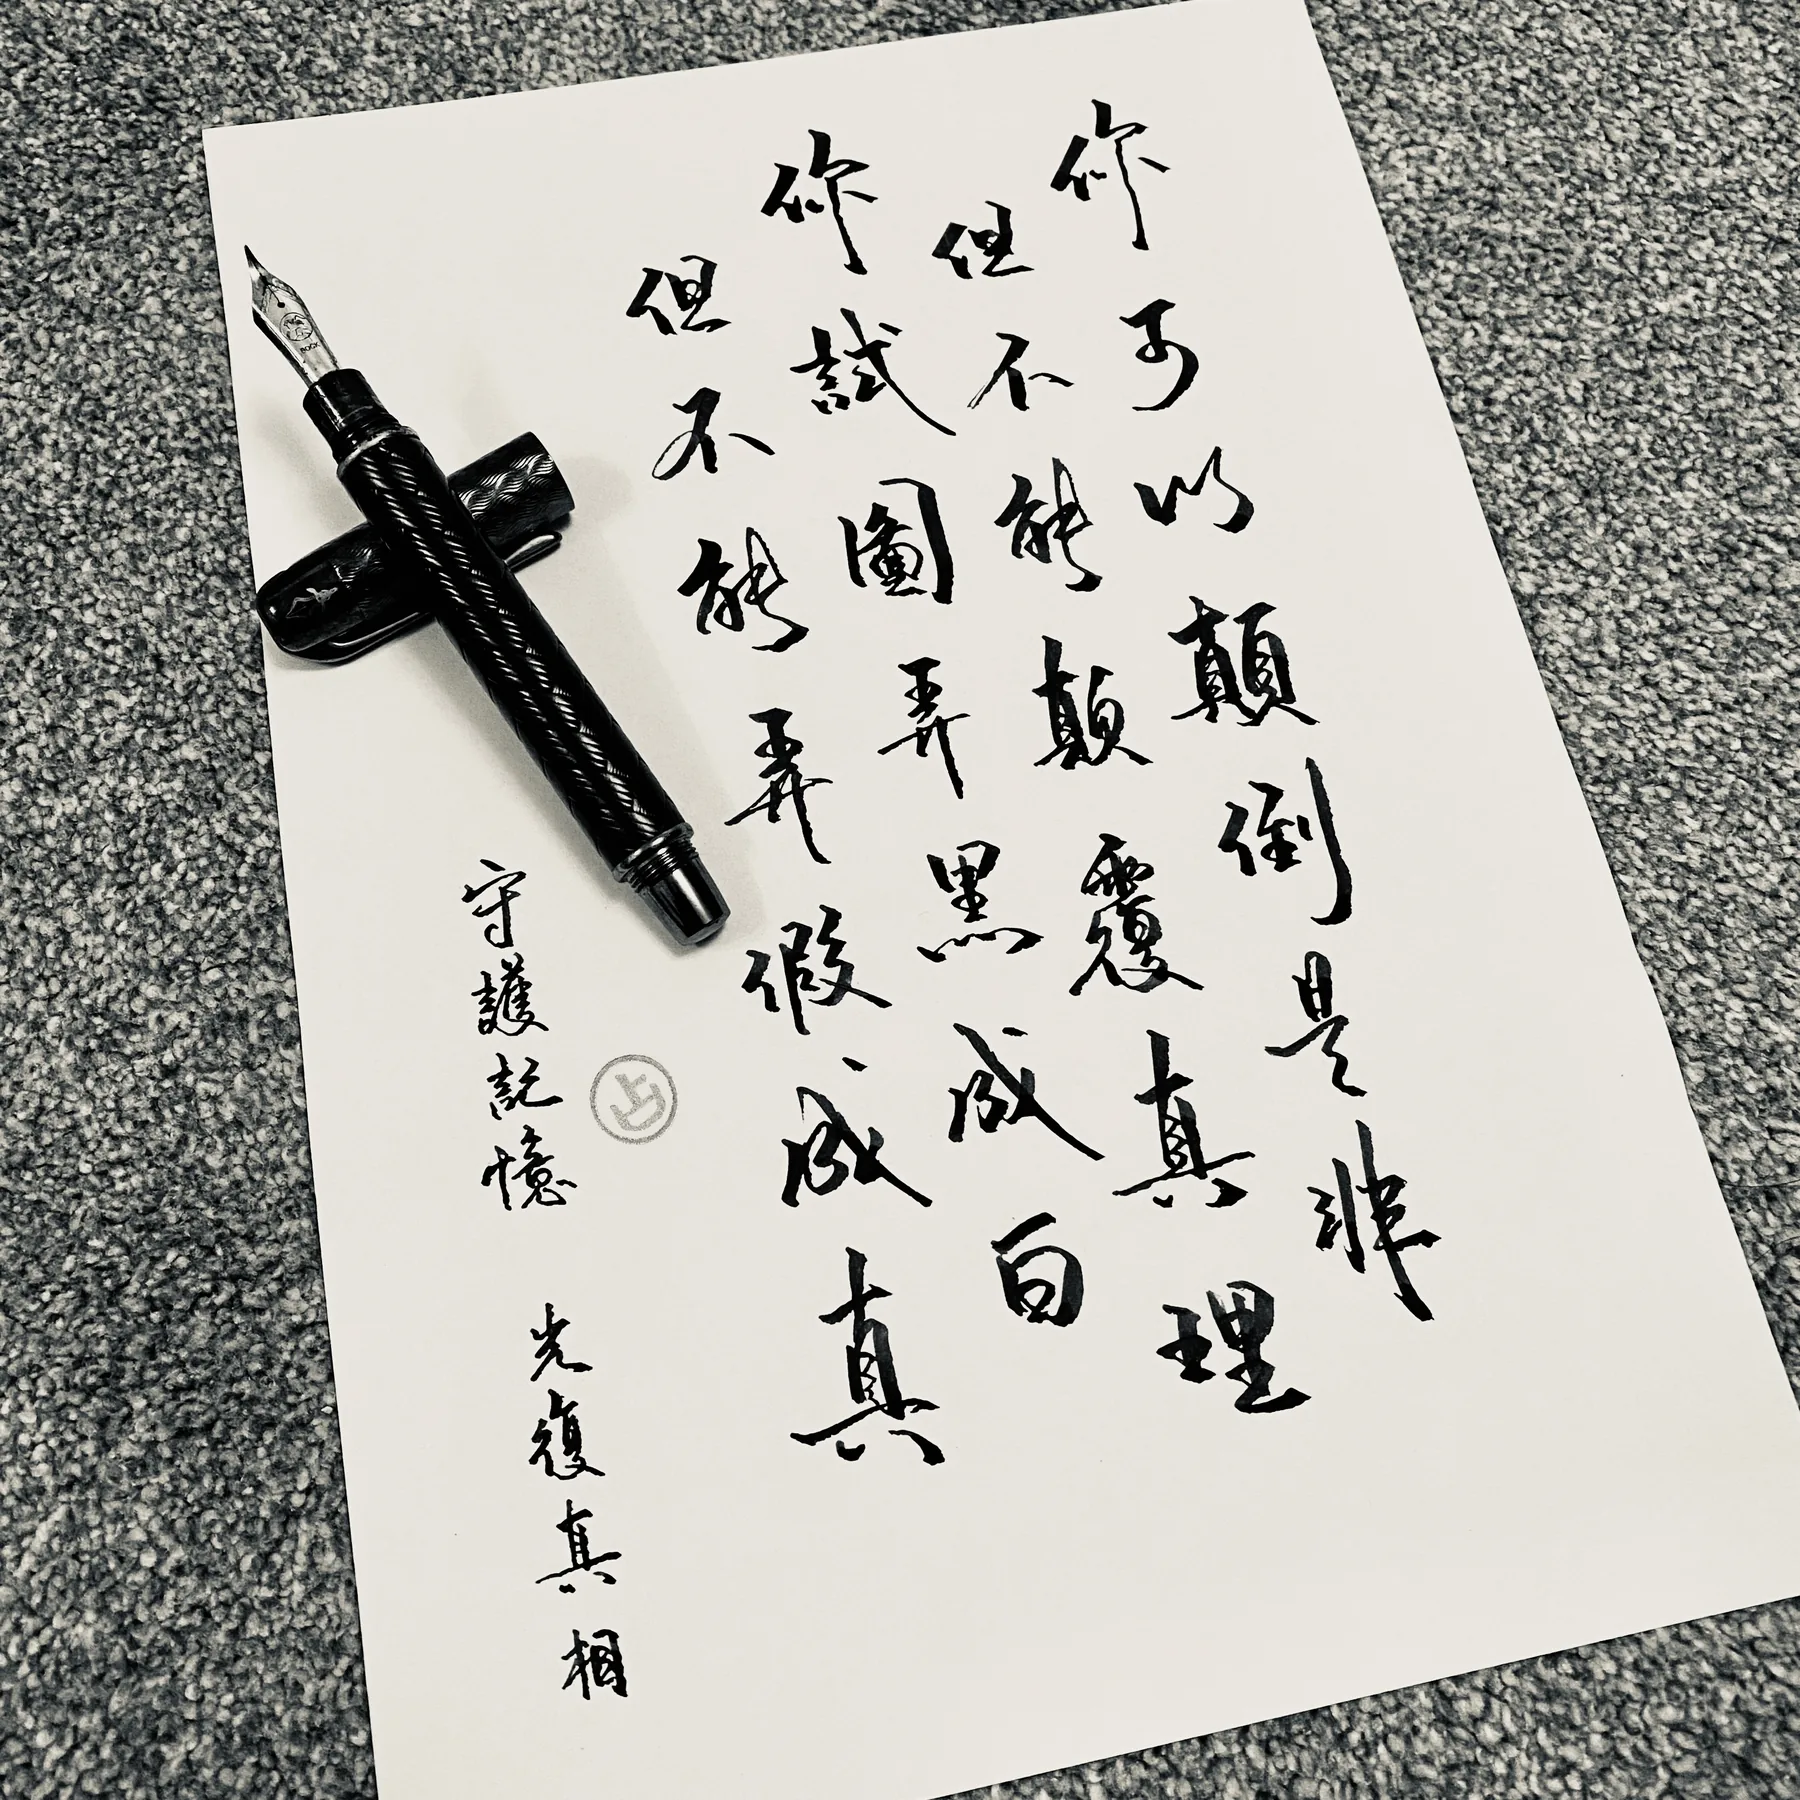 你可以顛倒是非
但不能顛覆真理
你試圖弄黑成白
但不能弄假成真
守護記憶 光復真相
BOCK